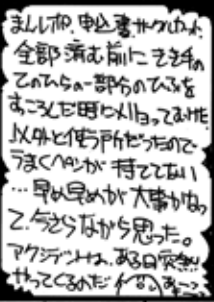 まんレポ、申込書サークルカット、
全部済む前にきき手
てのひらの一部分のひふを
すっころんだ時にメリョってむけた
以外と使う所だったので
うまくペンが持ててない
…早め早めが大事かなっ
て、今さらながら思った。
アクシデントは、ある日突然
やってくるのだ